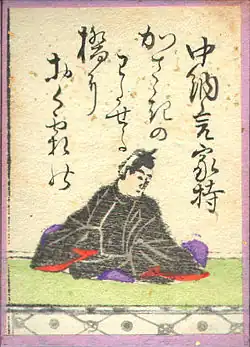 中納言家持
かさゝきの
わたせる
橋に
おくやまの